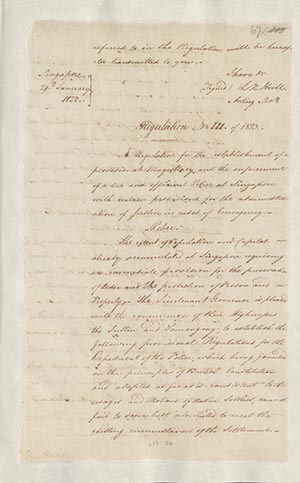 67
referred to in the Regulation will be hereafter
be transmitted to you.
Singapore
January
1823
I have &c
(Signed) L. N. Hull
Acting Secy
Regulation No. III of 1823.
A Regulation for the establishment of a
provisional Magistracy, and the enforcement
of a due and efficient Police at Singapore
with certain provisions for the administration
of Justice in cases of Emergency.
Police.
The extent of Population and Capital
already accumulated at Singapore requiring
an immediate provision for the preservation
of Peace and the protection of Person and
Property. The Lieutenant Governor is pleased
with the concurrence of their Highnesses
the Sultan and Tumungong to establish the
following provisional Regulations for the
Department of the Police, which being founded
on the principles of British Constitution
and adapted as far as is consistent to the
usages and Notions of Native Settlers, cannot
fail to seem best calculated to meet the
existing circumstances of the Settlement.